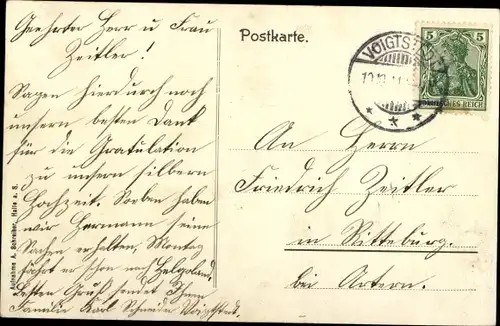 Geehrter Herr u Frau
Zeitler!
Sagen hierdurch noch
unsern besten Dank
für die Gratulation
zu unsern silbern
Hochzeit. Soeben haben
wir Hermann seine
Sachen erhalten, Montag
fährt er schon nach Helgoland.
Besten Gruß sendet Ihnen
Familie Karl Schneider Voigtstedt.
Aufnahme A. Schreiber, Halle a. S.
Postkarte.
VOIGTSTEDT
5 5
DEUTSCHES REICH
An Herrn
Friedrich Zeitler
in Ritteburg.
bei Artern.